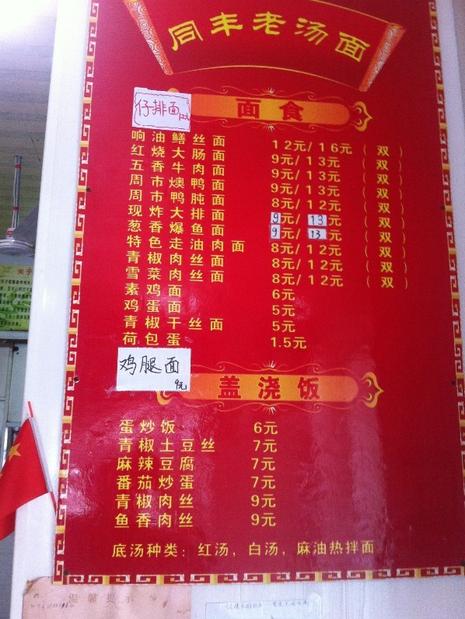 同丰老汤面
面食
仔排面 12元
响油鳝丝面 12元/16元（双）
红烧大肠面 9元/13元（双）
五香牛肉面 9元/13元（双）
周市燠鸭面 9元/13元（双）
周市鸭肫面 8元/12元（双）
现炸大排面 9元/13元（双）
葱香爆鱼面 9元/13元（双）
特色走油肉面 8元/12元（双）
青椒肉丝面 8元/12元（双）
雪菜肉丝面 8元/12元（双）
素鸡面 6元
鸡蛋面 5元
青椒干丝面 5元
荷包蛋 1.5元
鸡腿面 9元
盖浇饭
蛋炒饭 6元
青椒土豆丝 7元
麻辣豆腐 7元
番茄炒蛋 7元
青椒肉丝 9元
鱼香肉丝 9元
底汤种类：红汤，白汤，麻油热拌面
温馨提示